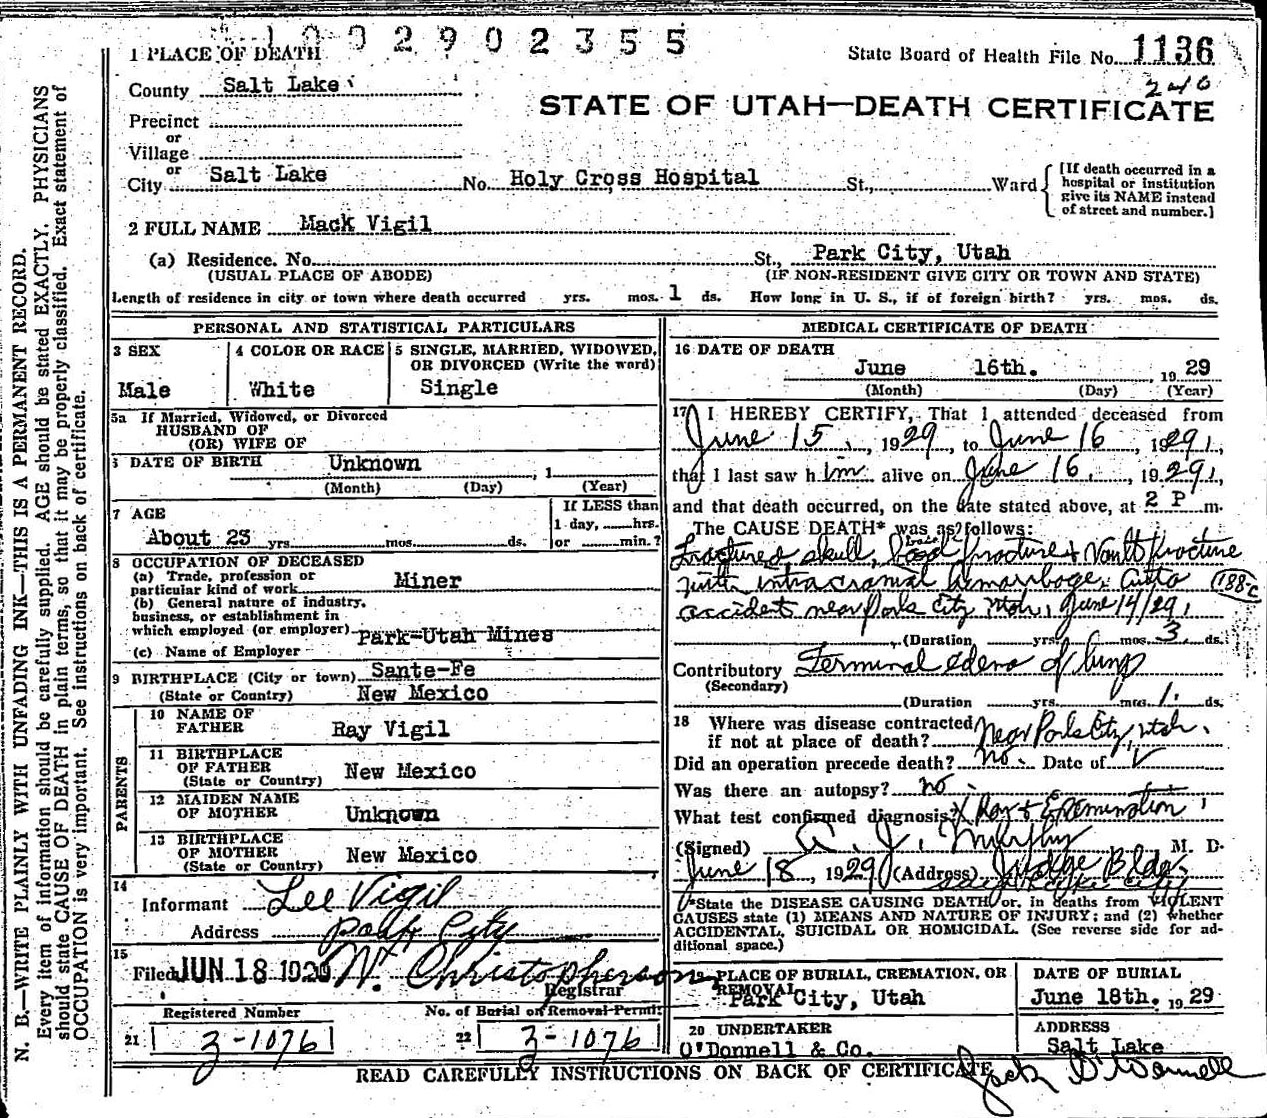 1002902355
1 PLACE OF DEATH
State Board of Health File No. 1136
246
County Salt Lake
STATE OF UTAH—DEATH CERTIFICATE
Precinct
or
Village
or
City Salt Lake No. Holy Cross Hospital St., Ward
[If death occurred in a hospital or institution give its NAME instead of street and number.]
2 FULL NAME Mack Vigil
(a) Residence. No. St., Park City, Utah
(USUAL PLACE OF ABODE) (IF NON-RESIDENT GIVE CITY OR TOWN AND STATE)
Length of residence in city or town where death occurred yrs. mos. 1 ds. How long in U. S., if of foreign birth? yrs. mos. ds.
PERSONAL AND STATISTICAL PARTICULARS
3 SEX
Male
4 COLOR OR RACE
White
5 SINGLE, MARRIED, WIDOWED, OR DIVORCED (Write the word)
Single
5a If Married, Widowed, or Divorced
HUSBAND OF
(OR) WIFE OF
6 DATE OF BIRTH Unknown , 1
(Month) (Day) (Year)
7 AGE
About 23 yrs. mos. ds.
If LESS than
1 day, hrs.
or min.?
8 OCCUPATION OF DECEASED
(a) Trade, profession or
particular kind of work Miner
(b) General nature of industry.
business, or establishment in
which employed (or employer) Park-Utah Mines
(c) Name of Employer
9 BIRTHPLACE (City or town) Sante-Fe
(State or Country) New Mexico
PARENTS
10 NAME OF
FATHER Ray Vigil
11 BIRTHPLACE
OF FATHER New Mexico
(State or Country)
12 MAIDEN NAME
OF MOTHER Unknown
13 BIRTHPLACE
OF MOTHER New Mexico
(State or Country)
14
Informant Lee Vigil
Address Park City
15
Filed JUN 18 1929 W. Christopherson
Registrar
Registered Number No. of Burial or Removal Permit
21 3-1076 22 3-1076
MEDICAL CERTIFICATE OF DEATH
16 DATE OF DEATH
June 16th. , 1929
(Month) (Day) (Year)
17 I HEREBY CERTIFY, That I attended deceased from
June 15, 1929, to June 16, 1929,
that I last saw him alive on June 16, 1929,
and that death occurred, on the date stated above, at 2 P m.
The CAUSE DEATH* was as follows:
Fractured skull, basal fracture & Vault fracture
with intracranial hemorrhage. Auto 188-c
accident near Park City Utah, June 14/29,
(Duration yrs. mos. 3 ds.
Contributory Terminal edema of lungs
(Secondary)
(Duration yrs. mos. 1 ds.
18 Where was disease contracted
if not at place of death? Near Park City, Utah.
Did an operation precede death? no. Date of
Was there an autopsy? no
What test confirmed diagnosis? X Ray & Examination
(Signed) A. J. Murphy M. D.
June 18, 1929 (Address) Judge Bldg.
Salt Lake City
*State the DISEASE CAUSING DEATH or, in deaths from VIOLENT
CAUSES state (1) MEANS AND NATURE OF INJURY; and (2) whether
ACCIDENTAL, SUICIDAL OR HOMICIDAL. (See reverse side for ad-
ditional space.)
19 PLACE OF BURIAL, CREMATION, OR
REMOVAL
Park City, Utah
DATE OF BURIAL
June 18th. 1929
20 UNDERTAKER
O'Donnell & Co.
ADDRESS
Salt Lake
Jack O'Donnell
READ CAREFULLY INSTRUCTIONS ON BACK OF CERTIFICATE
N. B.—WRITE PLAINLY WITH UNFADING INK—THIS IS A PERMANENT RECORD.
Every item of information should be carefully supplied. AGE should be stated EXACTLY. PHYSICIANS
should state CAUSE OF DEATH in plain terms, so that it may be properly classified. Exact statement of
OCCUPATION is very important. See instructions on back of certificate.